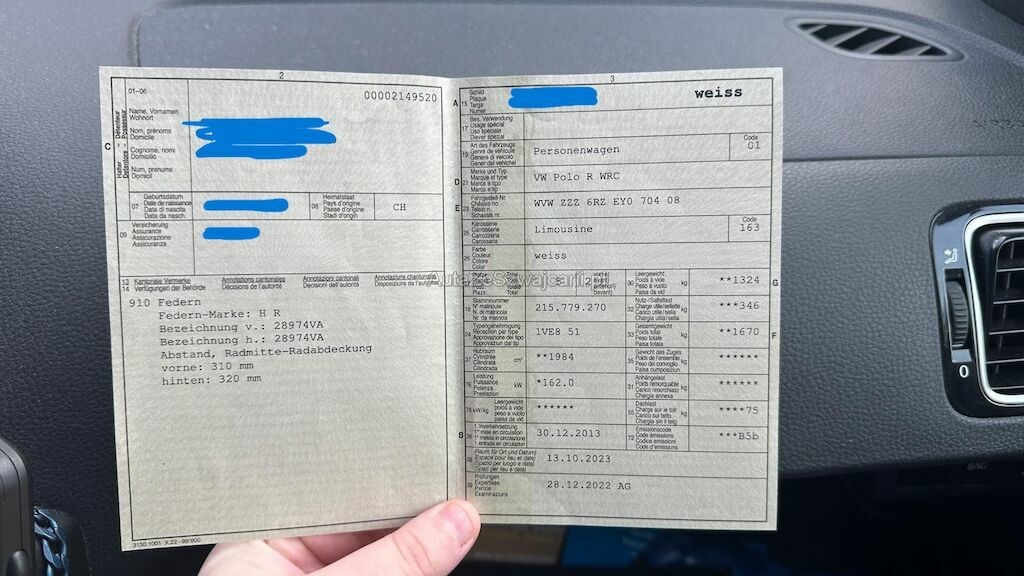 2
01-06
00002149520
C
Halter Détenteur
Detentore Possessur
Name, Vornamen
Wohnort
Nom, prénoms
Domicile
Cognome, nomi
Domicilio
Num, prenums
Domicil
07
Geburtsdatum
Date de naissance
Data di nascita
Data da nasch.
08
Heimatstaat
Pays d'origine
Paese d'origine
Stadi d'origin
CH
09
Versicherung
Assurance
Assicurazione
Assicuranza
13 Kantonale Vermerke Annotations cantonales Annotazioni cantonali Annotaziuns chantunalas
14 Verfügungen der Behörde Décisions de l'autorité Decisioni dell'autorità Disposiziuns da l'autoritad
910 Federn
Federn-Marke: H R
Bezeichnung v.: 28974VA
Bezeichnung h.: 28974VA
Abstand, Radmitte-Radabdeckung
vorne: 310 mm
hinten: 320 mm
3130.1001 X.22 - 99'600
3
A 15
Schild
Plaque
Targa
Numer
weiss
17
Bes. Verwendung
Usage spécial
Uso speciale
Diever spezial
19
Art des Fahrzeugs
Genre de véhicule
Genere di veicolo
Gener dal vehichel
Personenwagen
Code
01
D 21
Marke und Typ
Marque et type
Marca e tipo
Marca e tip
VW Polo R WRC
E 23
Fahrgestell-Nr.
Châssis no
Telaio n.
Schassis nr.
WVW ZZZ 6RZ EY0 704 08
25
Karosserie
Carrosserie
Carrozzeria
Carossaria
Limousine
Code
163
26
Farbe
Couleur
Colore
Colur
weiss
vorne
30
Leergewicht
Poids à vide
Peso a vuoto
Paisa da vid
kg
**1324
G
18
Stammnummer
N° matricule
N. di matricola
Nr. da matricla
215.779.270
32
Nutz-/Sattellast
Charge utile/sellette
Carico utile/sella
Chargia utila/sella
kg
***346
24
Typengenehmigung
Réception par type
Approvazione del tipo
Approvaziun dal tip
1VE8 51
33
Gesamtgewicht
Poids total
Peso totale
Paisa totala
kg
**1670
F
37
Hubraum
Cylindrée
Cilindrata
Cilindrada
cm³
**1984
35
Gewicht des Zuges
Poids de l'ensemble
Peso del convoglio
Paisa cumposiziun
kg
******
76
Leistung
Puissance
Potenza
Prestaziun
kW
*162.0
31
Anhängelast
Poids remorquable
Carico rimorchiato
Chargia annexa
kg
******
78 kW/kg
Leergewicht
poids à vide
peso a vuoto
paisa da vid
******
55
Dachlast
Charge sur le toit
Carico sul tetto
Chargia sin il tetg
kg
****75
B 36
1. Inverkehrsetzung
1re mise en circulation
1a messa in circolazione
1. entrada en circulaziun
30.12.2013
72
Emissionscode
Code émissions
Codice emissioni
Code d'emissiuns
***B5b
38
(Raum für Ort und Datum)
(Espace pour lieu et date)
(Spazio per luogo e data)
(Spazi per lieu e data)
13.10.2023
39
Prüfungen
Expertises
Perizie
Examinaziuns
28.12.2022 AG
0